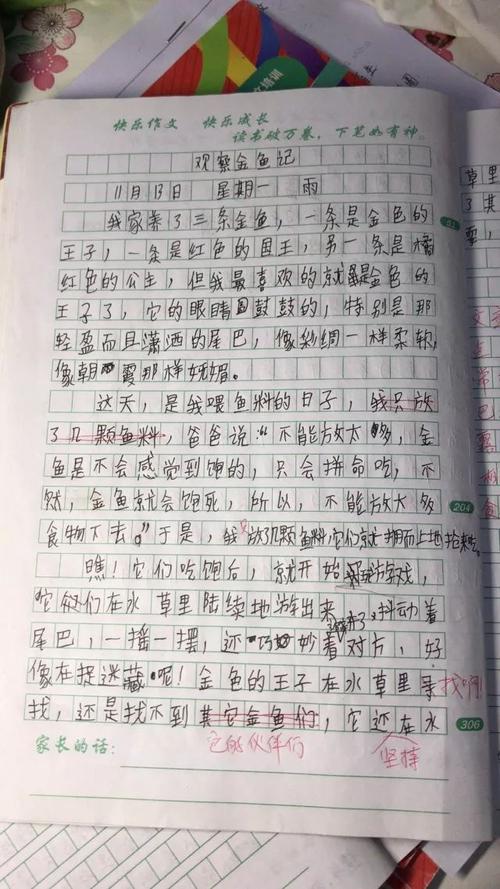 快乐作文 快乐成长
读书破万卷,下笔如有神。
观察金鱼记
11月13日 星期一 雨
我家养了三条金鱼,一条是金色的
王子,一条是红色的国王,另一条是橘
红色的公主,但我最喜欢的就是金色的
王子了,它的眼睛圆鼓鼓的,特别是那
轻盈而且潇洒的尾巴,像彩绸一样柔软,
像朝霞那样妩媚。
这天,是我喂鱼料的日子,我只放
了几颗鱼料,爸爸说:“不能放太多,金
鱼是不会感觉到饱的,只会拼命吃,不
然,金鱼就会饱死,所以,不能放太多
食物下去。”于是,我只放几颗鱼料,它们就拥而上地抢来吃。
204
瞧!它们吃饱后,就开始游戏,
它们在水草里陆续地游出来,抖动着
尾巴,一摇一摆,还巧妙着对方,好
像在捉迷藏呢!金色的王子在水草里寻找啊!
找,还是找不到其它金鱼们,它还在水
306
它的伙伴们
坚持
家长的话:
草里
了其